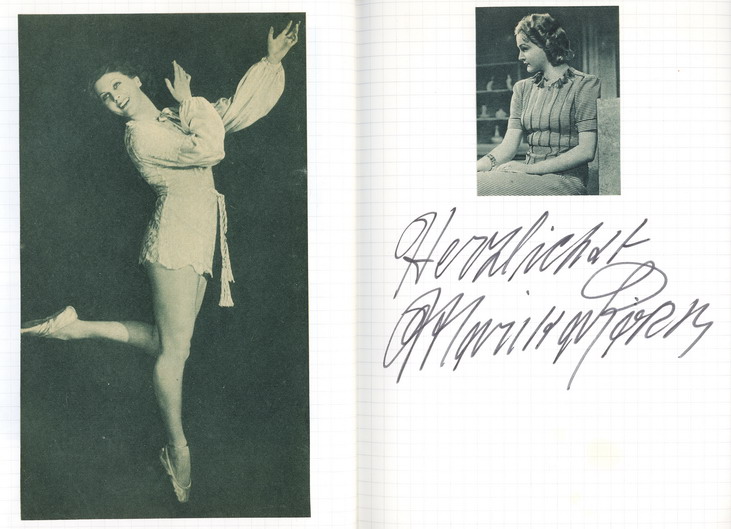 Herzlichst
Marika Rökk